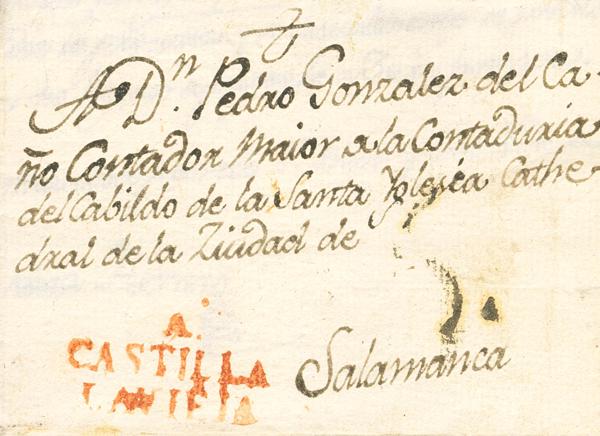 A D.n Pedro Gonzalez del Ca-
ño Contador Maior de la Contaduria
del Cabildo de la Santa Yglesia Cathe-
dral de la Ziudad de
Salamanca
A.
CASTILLA
LA VIEJA